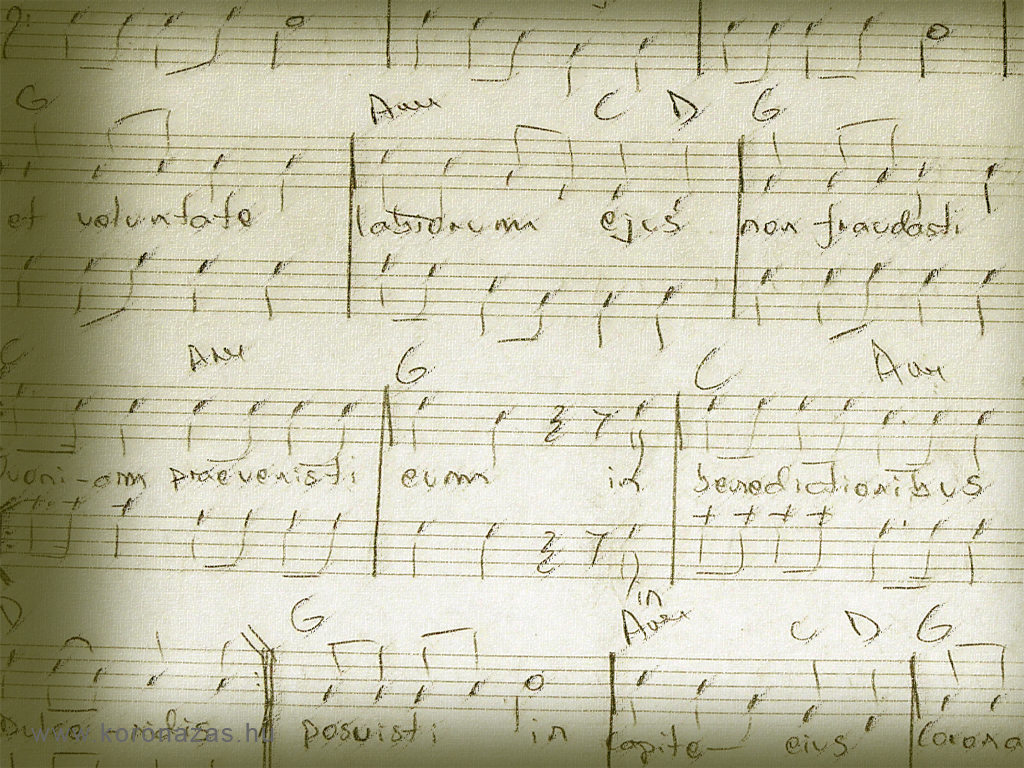 G Am C D G
et voluntate labiorum ejus non fraudasti
C Am G C Am
Quoni-am praevenisti eum in benedictionibus
in
D G Am C D G
posuisti in capite- eius Corona
www.koronazas.hu